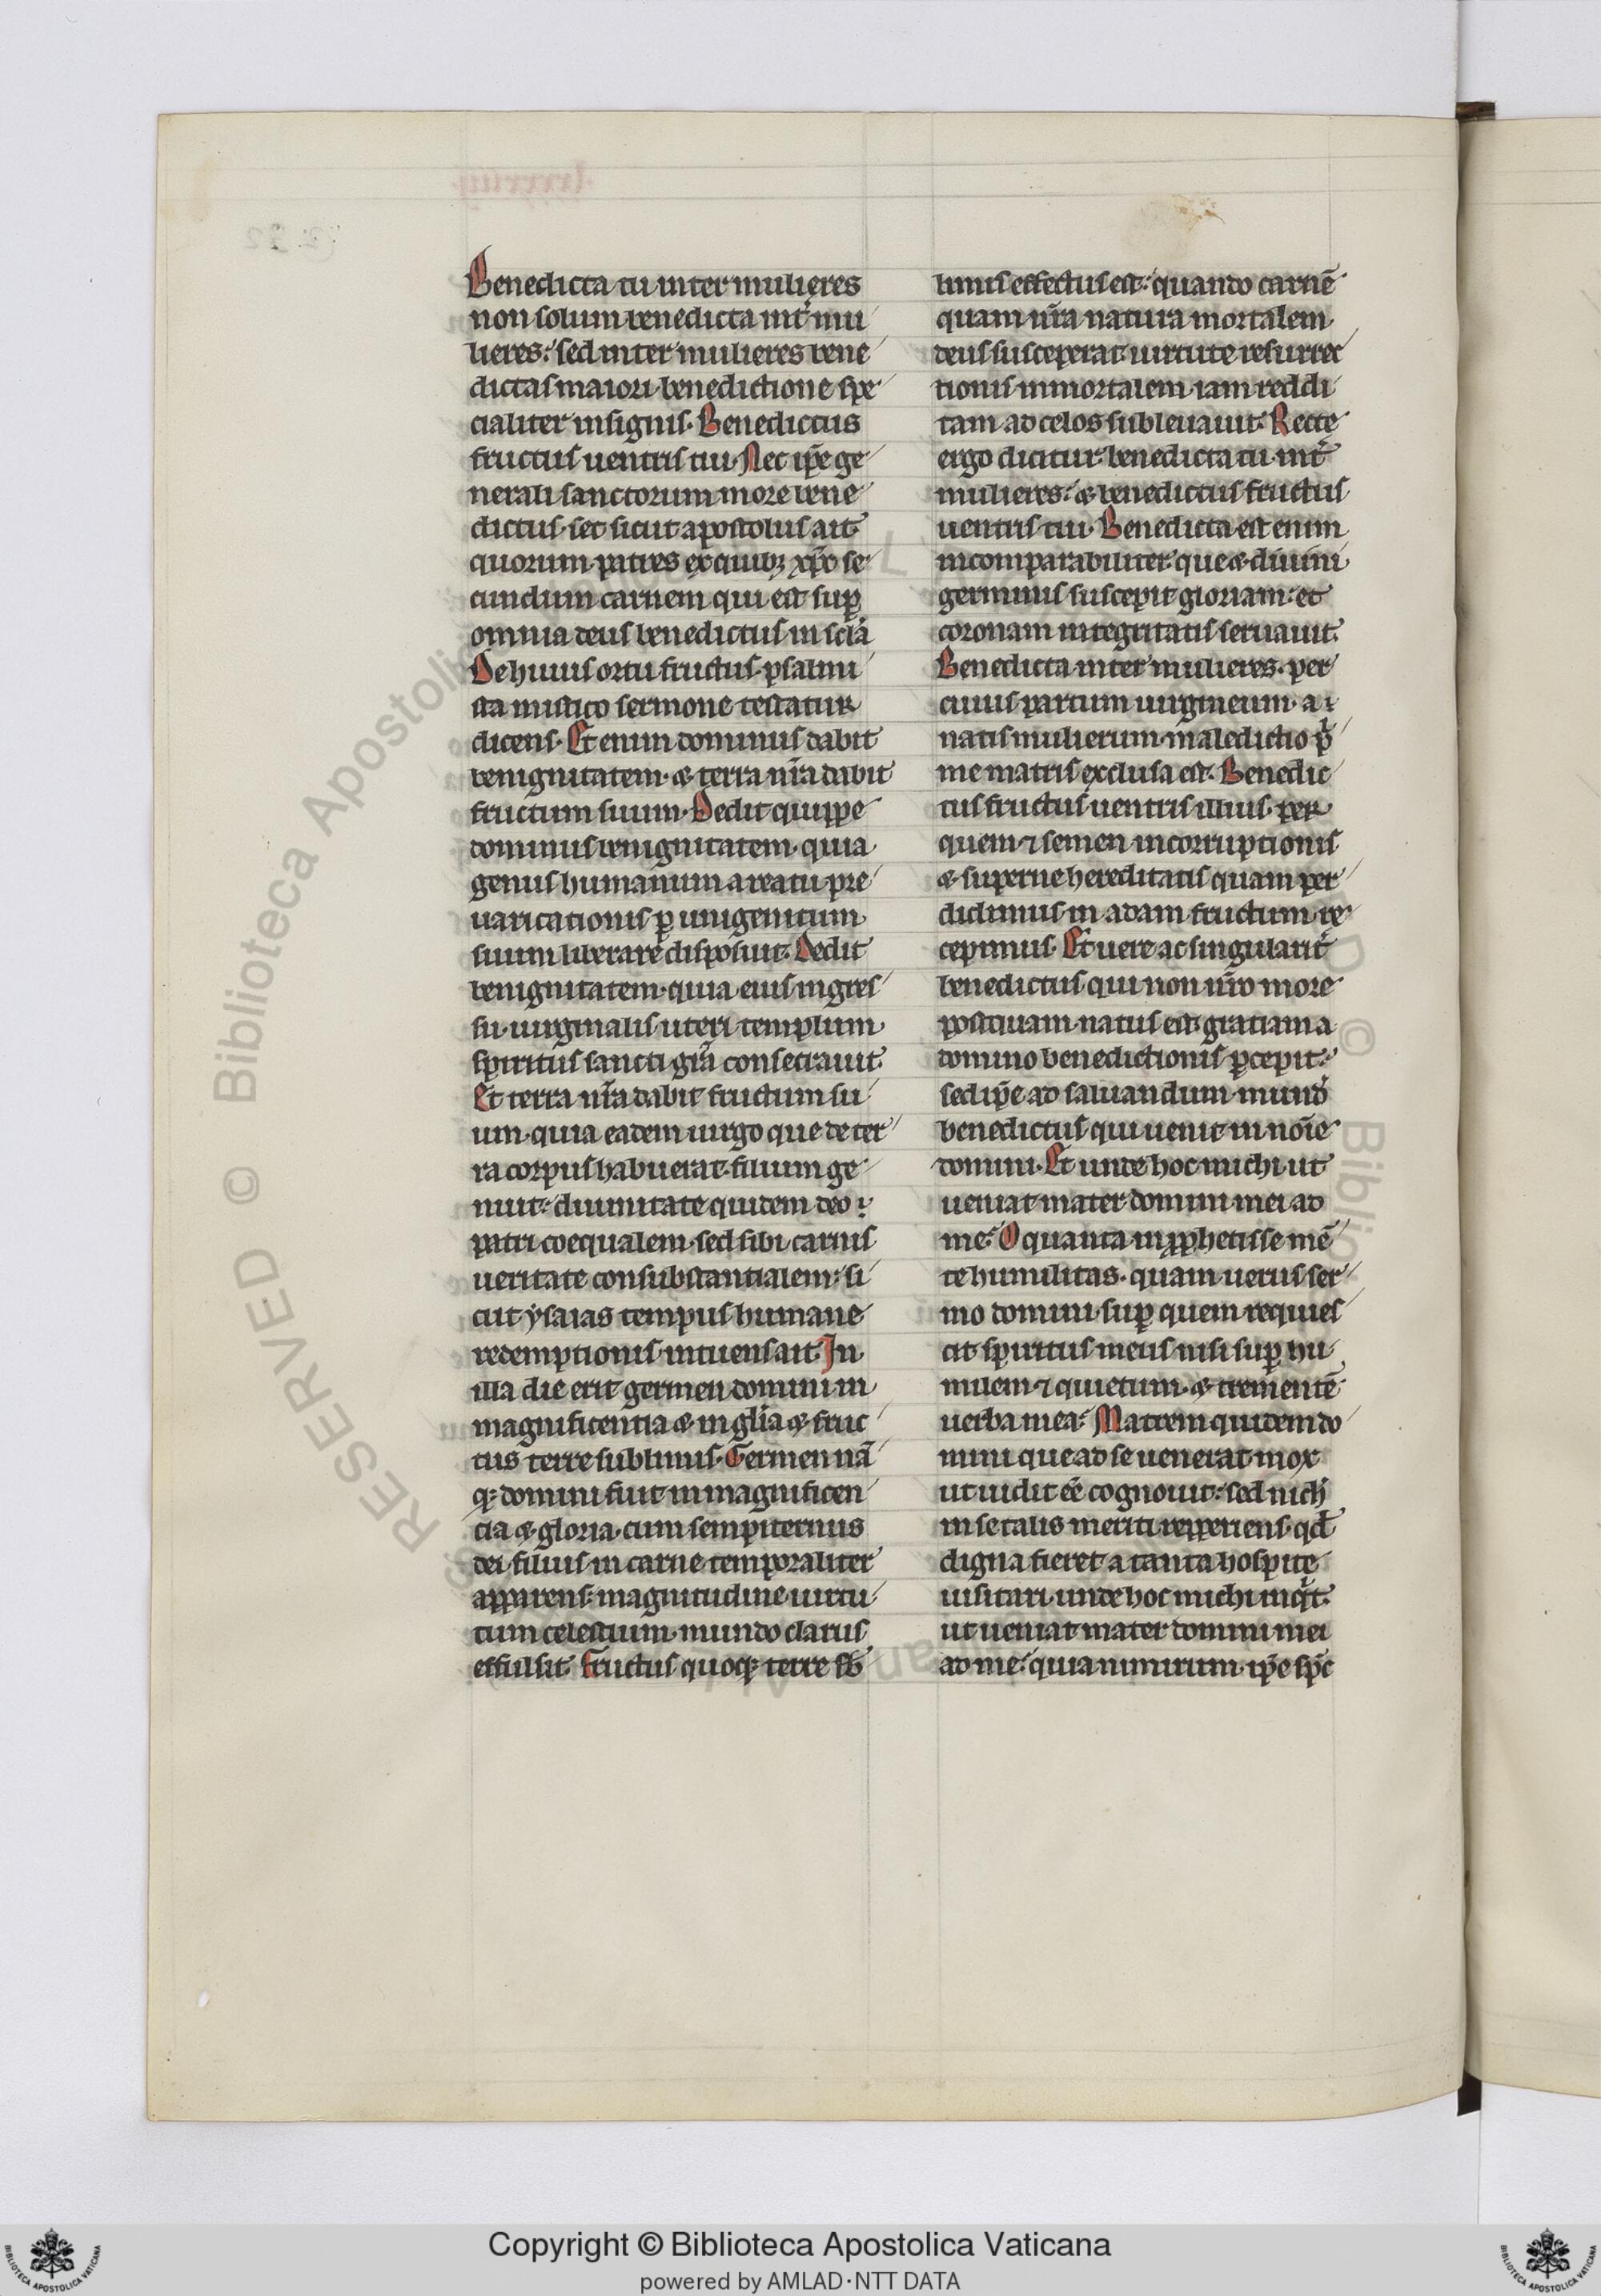 Benedicta tu inter mulieres
non solum benedicta int̄ mu
lieres: sed inter mulieres bene
dictas maiori benedictione spe
cialiter insignis. Benedictus
fructus uentris tui. Nec ip̄e ge
nerali sanctorum more bene
dictus. set sicut apostolus ait
quorum patres ex quibꝫ xp̄c se
cundum carnem qui est suꝑ
omnia deus benedictus in scl̄a
De huius ortu fructus psalmi
sta mistico sermone testatur
dicens. Et enim dominus dabit
benignitatem. & terra nr̄a dabit
fructum suum. Dedit quippe
dominus benignitatem. quia
genus humanum a reatu pre
uaricationis ꝑ unigenitum
suum liberare disposuit. Dedit
benignitatem. quia eius ingres
su uirginalis uteri templum
spiritus sancti gr̄a consecrauit.
Et terra nr̄a dabit fructum su
um. quia eadem uirgo que de ter
ra corpus habuerat. filium ge
nuit: diuinitate quidem deo
patri coequalem. sed sibi carnis
ueritate consubstantialem: si
cut ysaias tempus humane
redemptionis intuens ait. In
illa die erit germen domini in
magnificentia & in gl̄ia & fruc
tus terre sublimis. Germen nā
qꝫ domini fuit in magnificen
cia & gloria. cum sempiternus
dei filius in carne temporaliter
apparens. magnitudine uirtu
tum celestium. mundo clarus
effulsit. Fructus quoqꝫ terre sƀ
limis effectus est: quando carnē
quam nr̄a natura mortalem
deus susceperat. uirtute resurrec
tionis inmortalem iam reddi
tam ad celos subleuauit. Recte
ergo dicitur. benedicta tu int̄
mulieres: & benedictus fructus
uentris tui. Benedicta est enim
incomparabiliter. que & diuini
germinis suscepit gloriam: et
coronam integritatis seruauit.
Benedicta inter mulieres. per
cuius partum uirgineum. a
natis mulierum maledictio p̄
me matris exclusa est. Benedic
tus fructus uentris illius. per
quem ⁊ semen incorruptionis
& superne hereditatis quam per
didimus in adam fructum re
cepimus. Et uere ac singularit̄
benedictus qui non nr̄o more
postquam natus est gratiam a
domino benedictionis ꝑcepit:
sed ip̄e ad saluandum mundū
benedictus qui uenit in noīe
domini. Et unde hoc michi ut
ueniat mater domini mei ad
me: O quanta in pphetisse mē
te humilitas. quam uerus ser
mo domini. suꝑ quem requies
cit spiritus meus nisi suꝑ hu
milem ⁊ quietum. & trementē
uerba mea: Matrem quidem do
mini que ad se uenerat mox
ut uidit eē cognouit: sed nich̄
in se talis meriti repperiens. qđ
digna fieret a tanta hospite
uisitari. unde hoc michi inqͥt.
ut ueniat mater domini mei
ad me: quia nimirum. ip̄e sp̄c
Copyright © Biblioteca Apostolica Vaticana
powered by AMLAD·NTT DATA
BIBLIOTECA APOSTOLICA VATICANA
BIBLIOTECA APOSTOLICA VATICANA
RESERVED © Biblioteca Apostolic